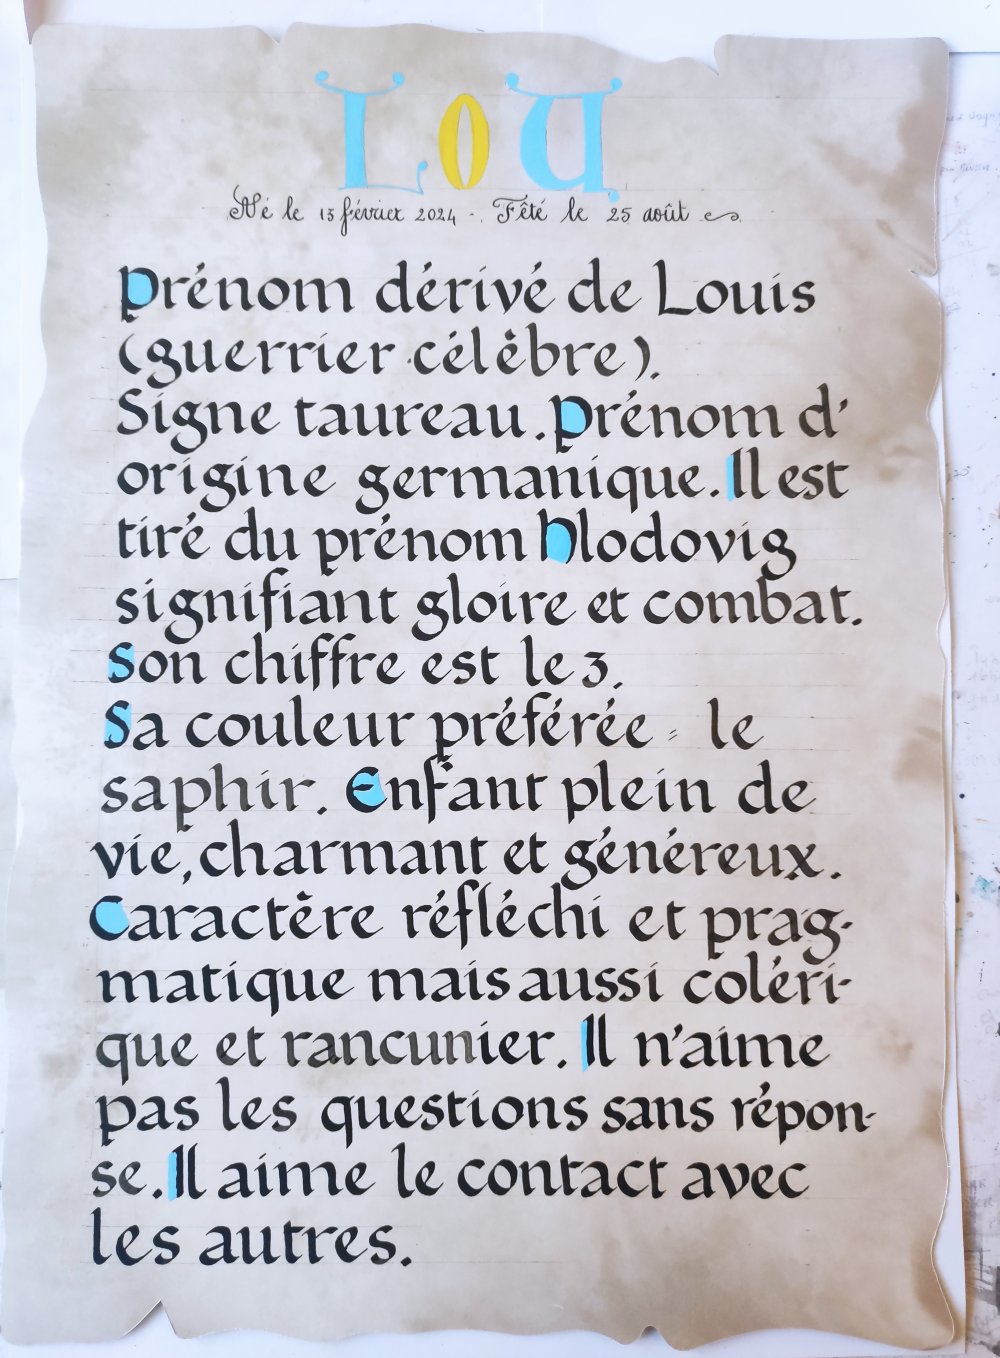 LOU
Né le 13 février 2024 - Fêté le 25 août
Prénom dérivé de Louis
(guerrier célèbre).
Signe taureau. Prénom d'
origine germanique. Il est
tiré du prénom hlodovig
signifiant gloire et combat.
Son chiffre est le 3.
Sa couleur préférée = le
saphir. Enfant plein de
vie, charmant et généreux.
Caractère réfléchi et prag-
matique mais aussi coléri-
que et rancunier. Il n'aime
pas les questions sans répon-
se. Il aime le contact avec
les autres.